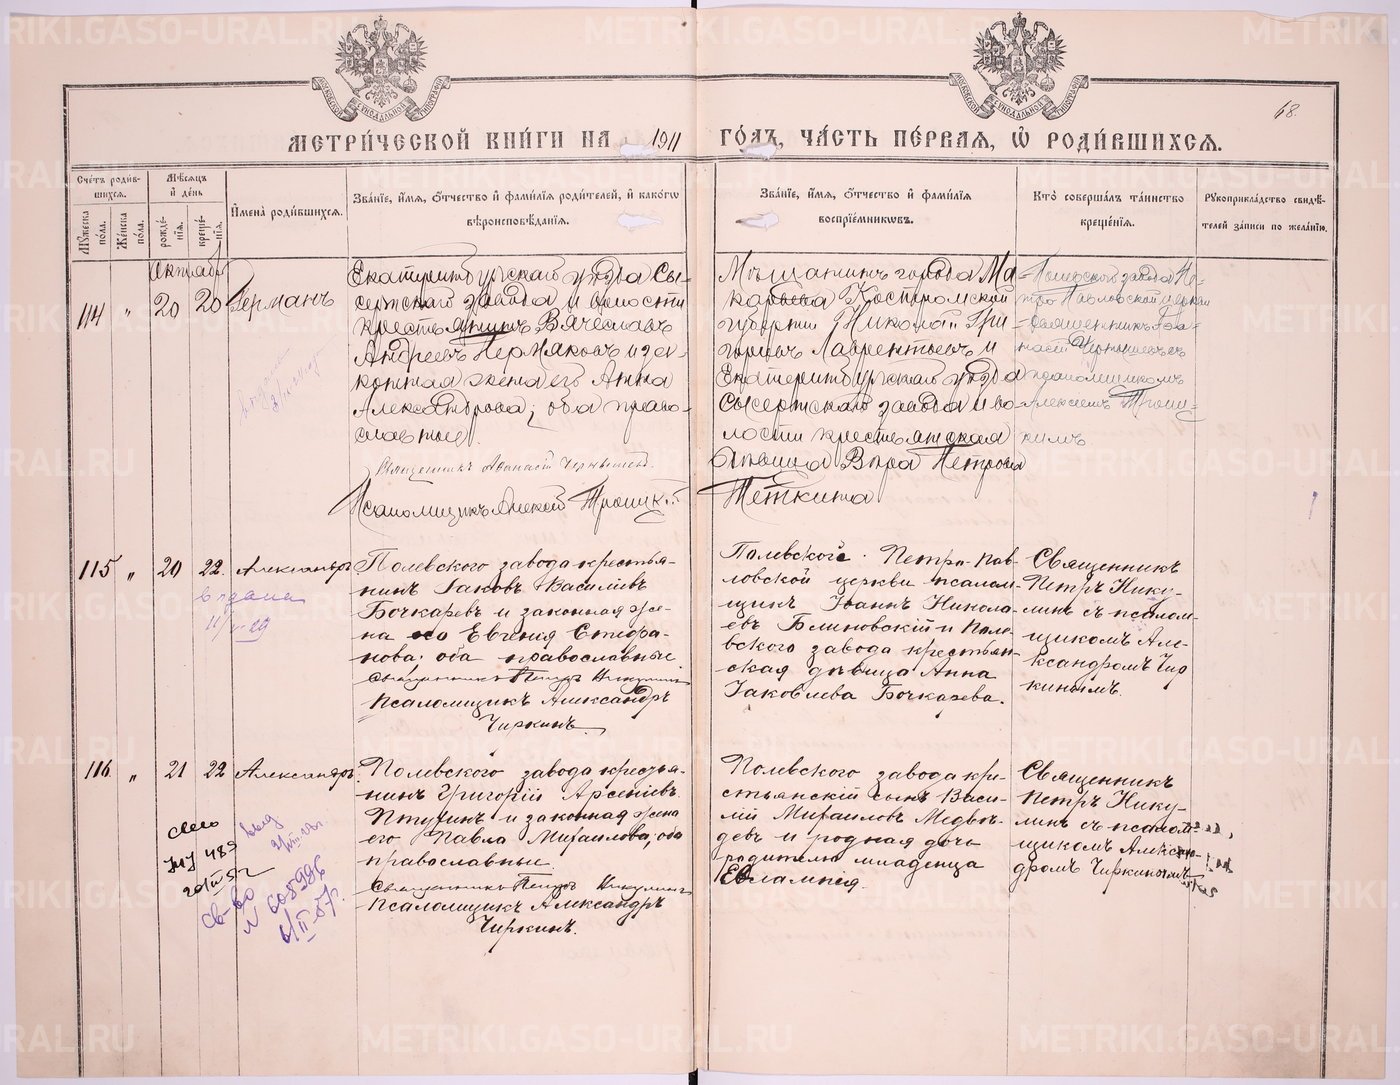 МЕТРИ́ЧЕСКОЙ КНИ́ГИ НА 1911 ГО́ДЪ, ЧА́СТЬ ПЕ́РВАЯ, Ѡ РОДИ́ВШИХСЯ.
68.
Сче́тъ роди́в-
шихся.
Му́жеска по́ла.
Же́нска по́ла.
Мѣ́сяцъ
и де́нь
рожде́-
нія.
креще́-
нія.
И́мена̀ роди́вшихся.
Зва́ніе, и́мя, о́тчество и фами́лія роди́телей, и како́гѡ
вѣроисповѣ́данія.
Зва́ніе, и́мя, о́тчество и фами́лія
воспріе́мниковъ.
Кто̀ соверша́лъ та́инство
креще́нія.
Рукоприкла́дство свидѣ́-
телей за́писи по жела́нію.
Октябрь
114
"
20
20
Германъ
Екатеринбургскаго уѣзда Сы-
сертскаго завода и волости
крестьянинъ Вячеславъ
Андреевъ Пермяковъ и за-
конная жена его Анна
Александрова; оба право-
славные.
Священникъ Афанасій Чернышевъ.
Псаломщикъ Алексѣй Троицкій
Мѣщанинъ города Ма
карьева Костромской
губерніи Николай Гри
горьевъ Лаврентьевъ и
Екатеринбургскаго уѣзда
Сысертскаго завода и во-
лости крестьянская
дѣвица Вѣра Петрова
Теткина
Полевского завода Пе-
тро-Павловской церкви
священникъ Афа-
насій Чернышевъ съ
псаломщикомъ
Алексѣемъ Троиц-
кимъ
115
"
20
22.
Александръ
Полевского завода крестья-
нинъ Іаковъ Васильевъ
Бочкаревъ и законная же-
на его Евгенія Стефа-
нова: оба православные.
Священникъ Петръ Никулинъ
Псаломщикъ Александръ
Чиркинъ.
Полевской Петро-Пав-
ловской церкви псалом-
щикъ Іоаннъ Никола-
евъ Блиновскій и Поле-
вского завода крестьян-
ская дѣвица Анна
Іаковлева Бочкарева.
Священникъ
Петръ Нику-
линъ съ псалом-
щикомъ Але-
ксандромъ Чир
кинымъ.
выдана
116.
"
21
22
Александръ.
Полевского завода крестья-
нинъ Григорій Арсеніевъ
Птухинъ и законная жена
его Павла Михаилова; оба
православные.
Священникъ Петръ Никулинъ
Псаломщикъ Александръ
Чиркинъ.
Полевского завода кре-
стьянскій сынъ Васи-
лій Михаиловъ Медвѣ-
девъ и родная дочь
родителю младенца
Евлампія.
Священникъ
Петръ Нику-
линъ съ псалом-
щикомъ Алексан-
дромъ Чиркинымъ
св-во
METRIKI.GASO-URAL.RU